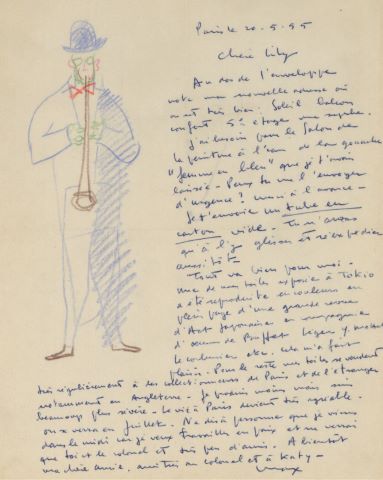 Paris le 20-5-55
Chère Lily
Au dos de l'enveloppe
note ma nouvelle adresse où
on est très bien: Soleil balcon
confort 5e étage vue superbe.
J'ai besoin pour le Salon de
la peinture à l'eau de la gouache
"femme en bleu" que je t'avais
laissée - Peux tu me l'envoyer
d'urgence? merci à l'avance -
Je t'envoie un tube en
carton vide. Tu n'auras
qu'à l'y glisser et réexpédier
aussitôt
Tout va bien pour moi -
une de mes toiles exposée à Tokio
a été reproduite en couleurs en
pleine page d'une grande revue
d'Art Japonaise en compagnie
d'œuvres de Buffet Léger
le corbusier etc. cela m'a fait
plaisir. Pour le reste mes toiles se vendent
très régulièrement à des collectionneurs de Paris et de l'étranger
notamment en Angleterre - Je produis moins mais suis
beaucoup plus sévère. La vie à Paris devient très agréable.
on se verra en Juillet. Ne dis à personne que je viens
dans le midi car je veux travailler en paix et ne verrai
que toi et le colonel et très peu d'amis. A bientôt
ma chère amie, amitiés au colonel et à Katy -
Max